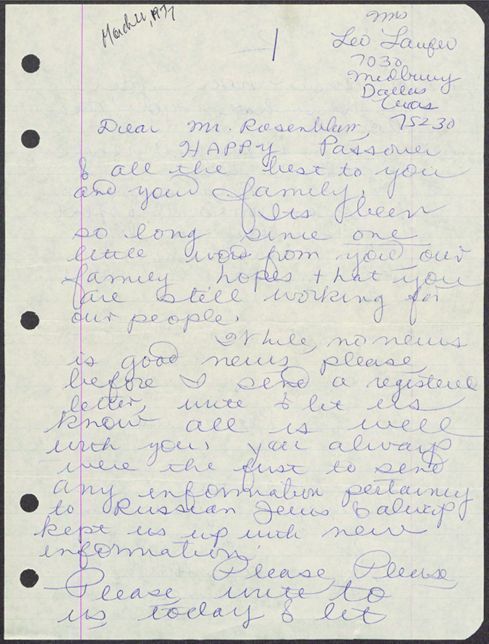 March 1, 1977
1
Mrs
Leo Laufer
7030
Medbury
Dallas
Texas
75230
Dear Mr. Rosenblum,
HAPPY Passover
& all the best to you
and your family.
Its been
so long since one
little word from you our
family hopes that you
are still working for
our people.
While, no news
is good news, please,
before I send a registered
letter, write & let us
know all is well
with you, you always
were the first to send
any information pertaining
to Russian Jews & always
kept us up with new
information.
Please, Please,
Please write to
us today & let